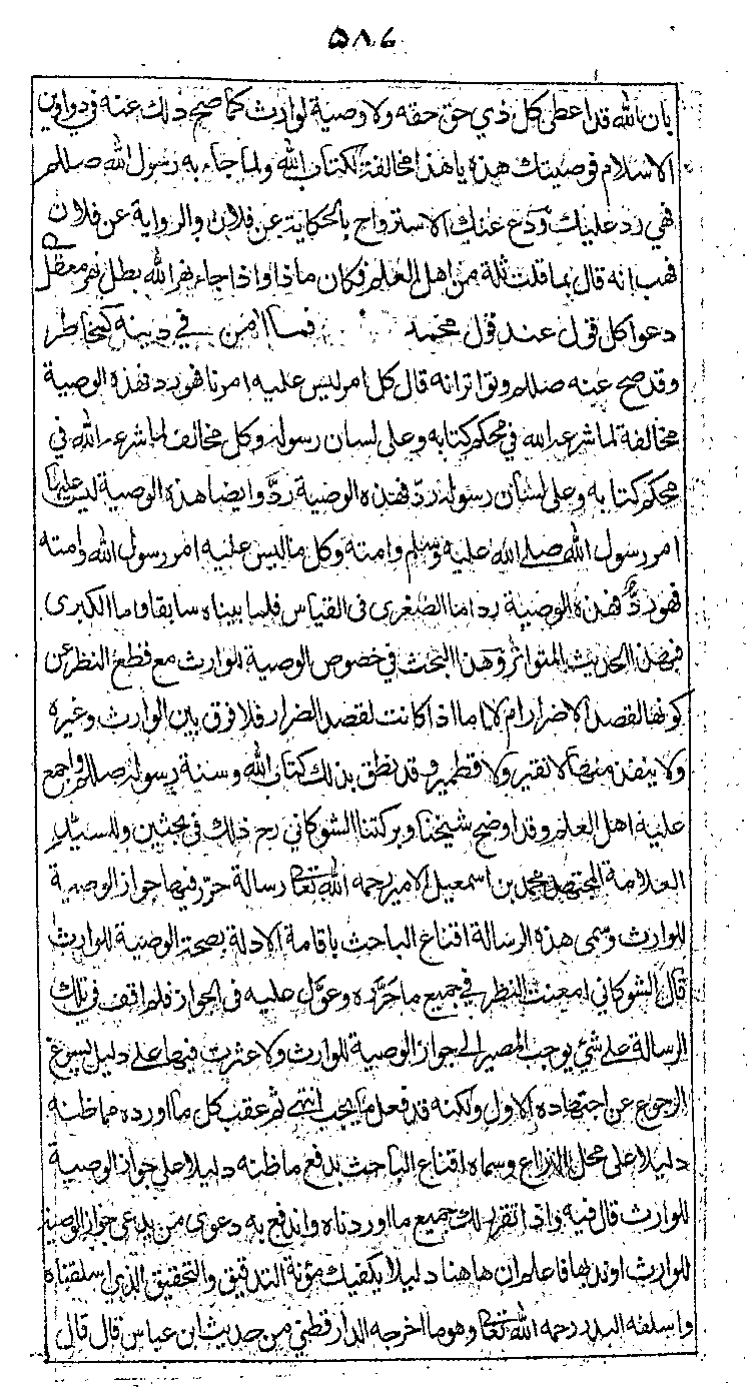 ٥٨٦
بان الله قد اعطى كل ذي حق حقه ولا وصية لوارث كما صح ذلك عنه في دواوين
الاسلام فوصيتك هذه يا هذا مخالفة لكتاب الله ولما جاء به رسول الله صللم
فهي رد عليك ودع عنك الاسترواح بالحكاية عن فلان والرواية عن فلان
فهب انه قال بما قلت ثلة من اهل العلم فكان ماذا واذا جاء نهر الله بطل نهر معقل
دعوا كل قول عند قول محمد فما امن في دينه كمخاطر
وقد صح عنه صللم وتواتر انه قال كل امر ليس عليه امرنا فهو رد فهذه الوصية
مخالفة لما شرعه الله في محكم كتابه وعلى لسان رسوله وكل مخالف لما شرعه الله في
محكم كتابه وعلى لسان رسوله ردّ فهذه الوصية ردّ وايضا هذه الوصية ليس عليها
امر رسول الله صلى الله عليه وسلم وامته وكل ما ليس عليه امر رسول الله وامته
فهو ردّ فهذه الوصية رد اما الصغرى فى القياس فلما بيناه سابقا واما الكبرى
فبهذا الحديث المتواتر وهذا البحث في خصوص الوصية للوارث مع قطع النظر عن
كونها لقصد الاضرار ام لا اما اذا كانت لقصد الضرار فلا فرق بين الوارث وغيره
ولا ينفذ منها لا نقير ولا قطمير وقد نطق بذلك كتاب الله وسنة رسوله صللم واجمع
عليه اهل العلم وقد اوضح شيخنا وبركتنا الشوكاني رح ذلك فى بحثين وللسيد
العلامة المجتهد محمد بن اسمعيل الامير رحمه الله تعالى رسالة حرّر فيها جواز الوصية
للوارث وسمى هذه الرسالة اقناع الباحث باقامة الادلة بصحة الوصية للوارث
قال الشوكاني امعنت النظر في جميع ما حرّره وعوّل عليه فى الجواز فلم اقف في تلك
الرسالة على شئ يوجب المصير الى جواز الوصية للوارث ولا عثرت فيها على دليل يسوغ
الرجوع عن اجتهاده الاول ولكنه قد فعل ما يجب انتهى ثم عقب كل ما اورده مما ظنه
دليلا على محل النزاع وسماه اقناع الباحث بدفع ما ظنه دليلا على جواز الوصية
للوارث قال فيه واذا تقرر لك جميع ما اوردناه واندفع به دعوى من يدعى جواز الوصية
للوارث او ندبها فاعلم ان هاهنا دليلا يكفيك مؤنة التدقيق والتحقيق الذي اسلفناه
واسلفه البدر رحمه الله تعالى وهو ما اخرجه الدارقطني من حديث ابن عباس قال قال